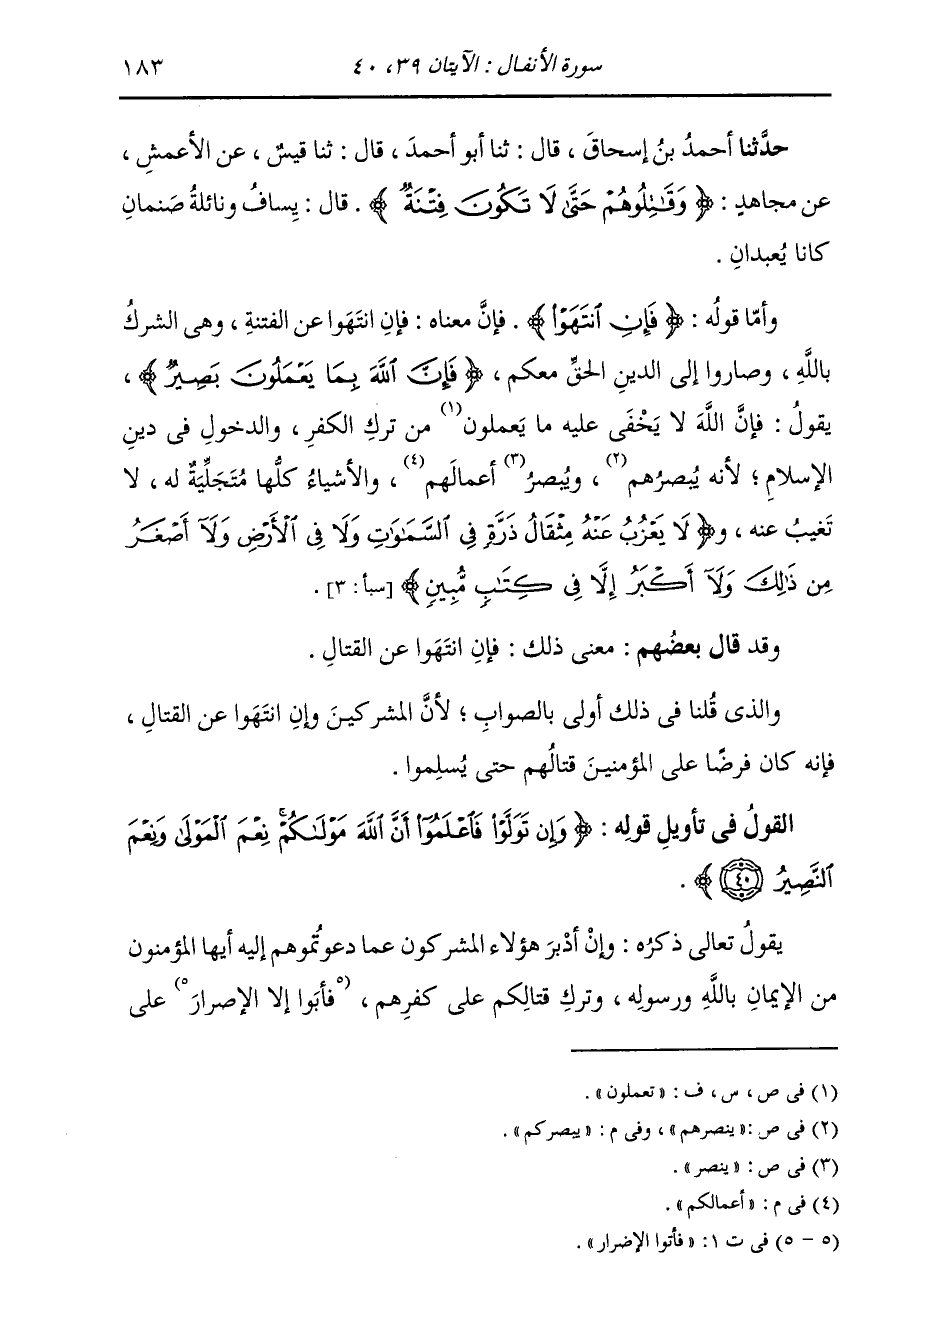 سورة الأنفال : الآيتان ٣٩، ٤٠
١٨٣
حدَّثنا أحمدُ بنُ إسحاقَ ، قال : ثنا أبو أحمدَ ، قال : ثنا قيسٌ ، عن الأعمشِ ،
عن مجاهدٍ : ﴿ وَقَٰتِلُوهُمْ حَتَّىٰ لَا تَكُونَ فِتْنَةٌ ﴾ . قال : يِسافُ ونائلةُ صَنمانِ
كانا يُعبدانِ .
وأمّا قولُه : ﴿ فَإِنِ ٱنتَهَوْا۟ ﴾ . فإنَّ معناه : فإنِ انتَهَوا عن الفتنةِ ، وهى الشركُ
باللَّهِ ، وصاروا إلى الدينِ الحقِّ معكم ، ﴿ فَإِنَّ ٱللَّهَ بِمَا يَعْمَلُونَ بَصِيرٌ ﴾ ،
يقولُ : فإنَّ اللَّهَ لا يَخْفَى عليه ما يَعملون(١) من تركِ الكفرِ ، والدخولِ فى دينِ
الإسلامِ ؛ لأنه يُبصرُهم(٢) ، ويُبصرُ(٣) أعمالَهم(٤) ، والأشياءُ كلُّها مُتَجلِّيَةٌ له ، لا
تَغيبُ عنه ، و﴿ لَا يَعْزُبُ عَنْهُ مِثْقَالُ ذَرَّةٍ فِى ٱلسَّمَٰوَٰتِ وَلَا فِى ٱلْأَرْضِ وَلَآ أَصْغَرُ
مِن ذَٰلِكَ وَلَآ أَكْبَرُ إِلَّا فِى كِتَٰبٍ مُّبِينٍ ﴾ [سبأ: ٣] .
وقد قال بعضُهم : معنى ذلك : فإنِ انتَهَوا عن القتالِ .
والذى قُلنا فى ذلك أولى بالصوابِ ؛ لأنَّ المشركينَ وإنِ انتَهَوا عن القتالِ ،
فإنه كان فرضًا على المؤمنينَ قتالُهم حتى يُسلِموا .
القولُ فى تأويلِ قولِه : ﴿ وَإِن تَوَلَّوْا۟ فَٱعْلَمُوٓا۟ أَنَّ ٱللَّهَ مَوْلَىٰكُمْ ۚ نِعْمَ ٱلْمَوْلَىٰ وَنِعْمَ
ٱلنَّصِيرُ ٤٠ ﴾ .
يقولُ تعالى ذكرُه : وإنْ أدْبرَ هؤلاء المشركون عما دعوتُموهم إليه أيها المؤمنون
من الإيمانِ باللَّهِ ورسولِه ، وتركِ قتالِكم على كفرِهم ، (٥فأبَوا إلا الإصرارَ٥) على
(١) فى ص ، س ، ف : «تعملون» .
(٢) فى ص : «ينصرهم» ، وفى م : «يبصركم» .
(٣) فى ص : «ينصر» .
(٤) فى م : «أعمالكم» .
(٥ - ٥) فى ت ١: «فأتوا الإضرار» .